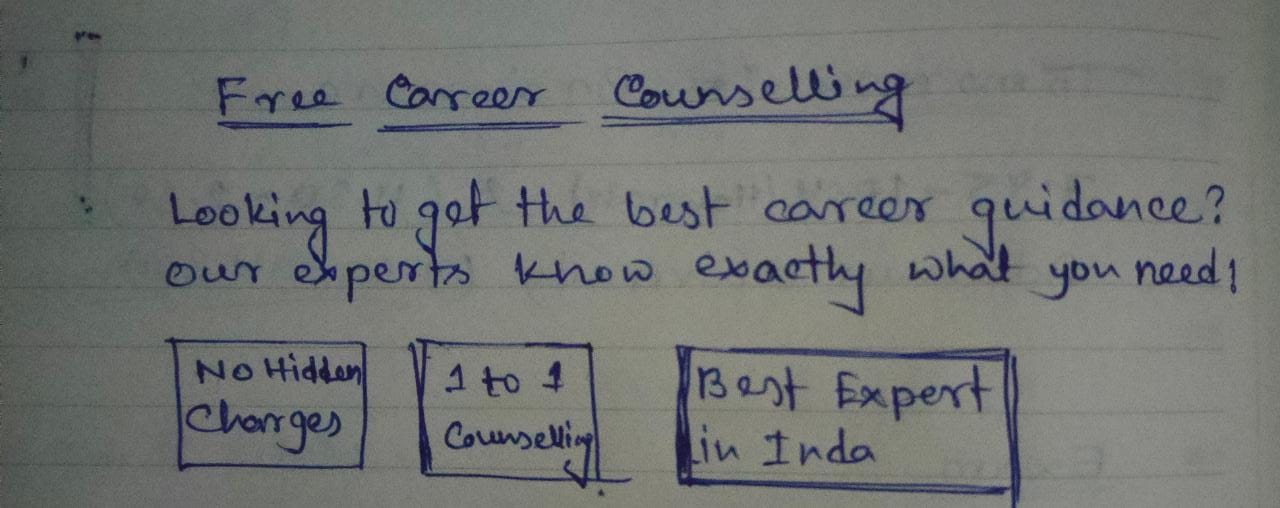 Free Career Counselling
Looking to get the best career guidance?
our experts know exactly what you need!
No Hidden
Charges
1 to 1
Counselling
Best Expert
in Inda